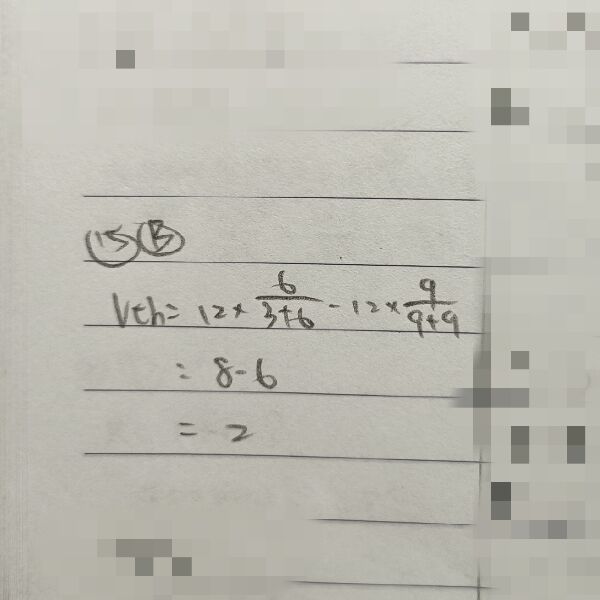 15 B
Vth = 12 × 6/(3+6) - 12 × 9/(9+9)
= 8 - 6
= 2